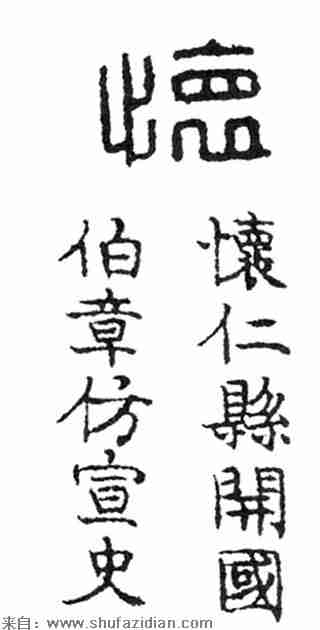 懷
懷仁縣開國
伯章仿宣史
来自：www.shufazidian.com